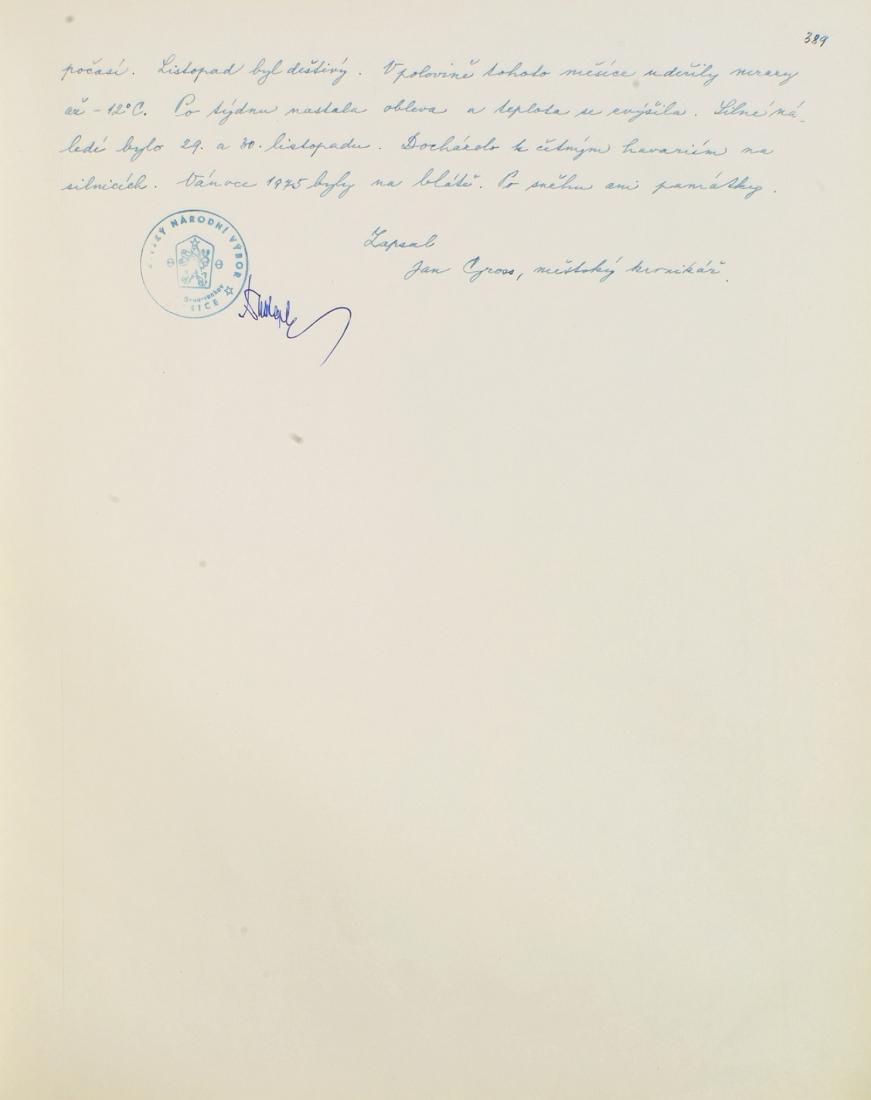 389
počasí. Listopad byl deštivý. V polovině tohoto měsíce udeřily mrazy
až -12°C. Po týdnu nastala obleva a teplota se zvýšila. Silné ná-
ledí bylo 29. a 30. listopadu. Docházelo k četným havariím na
silnicích. Vánoce 1975 byly na blátě. Po sněhu ani památky.
Zapsal
Jan Gross, městský kronikář.
NÁRODNÍ VÝBOR